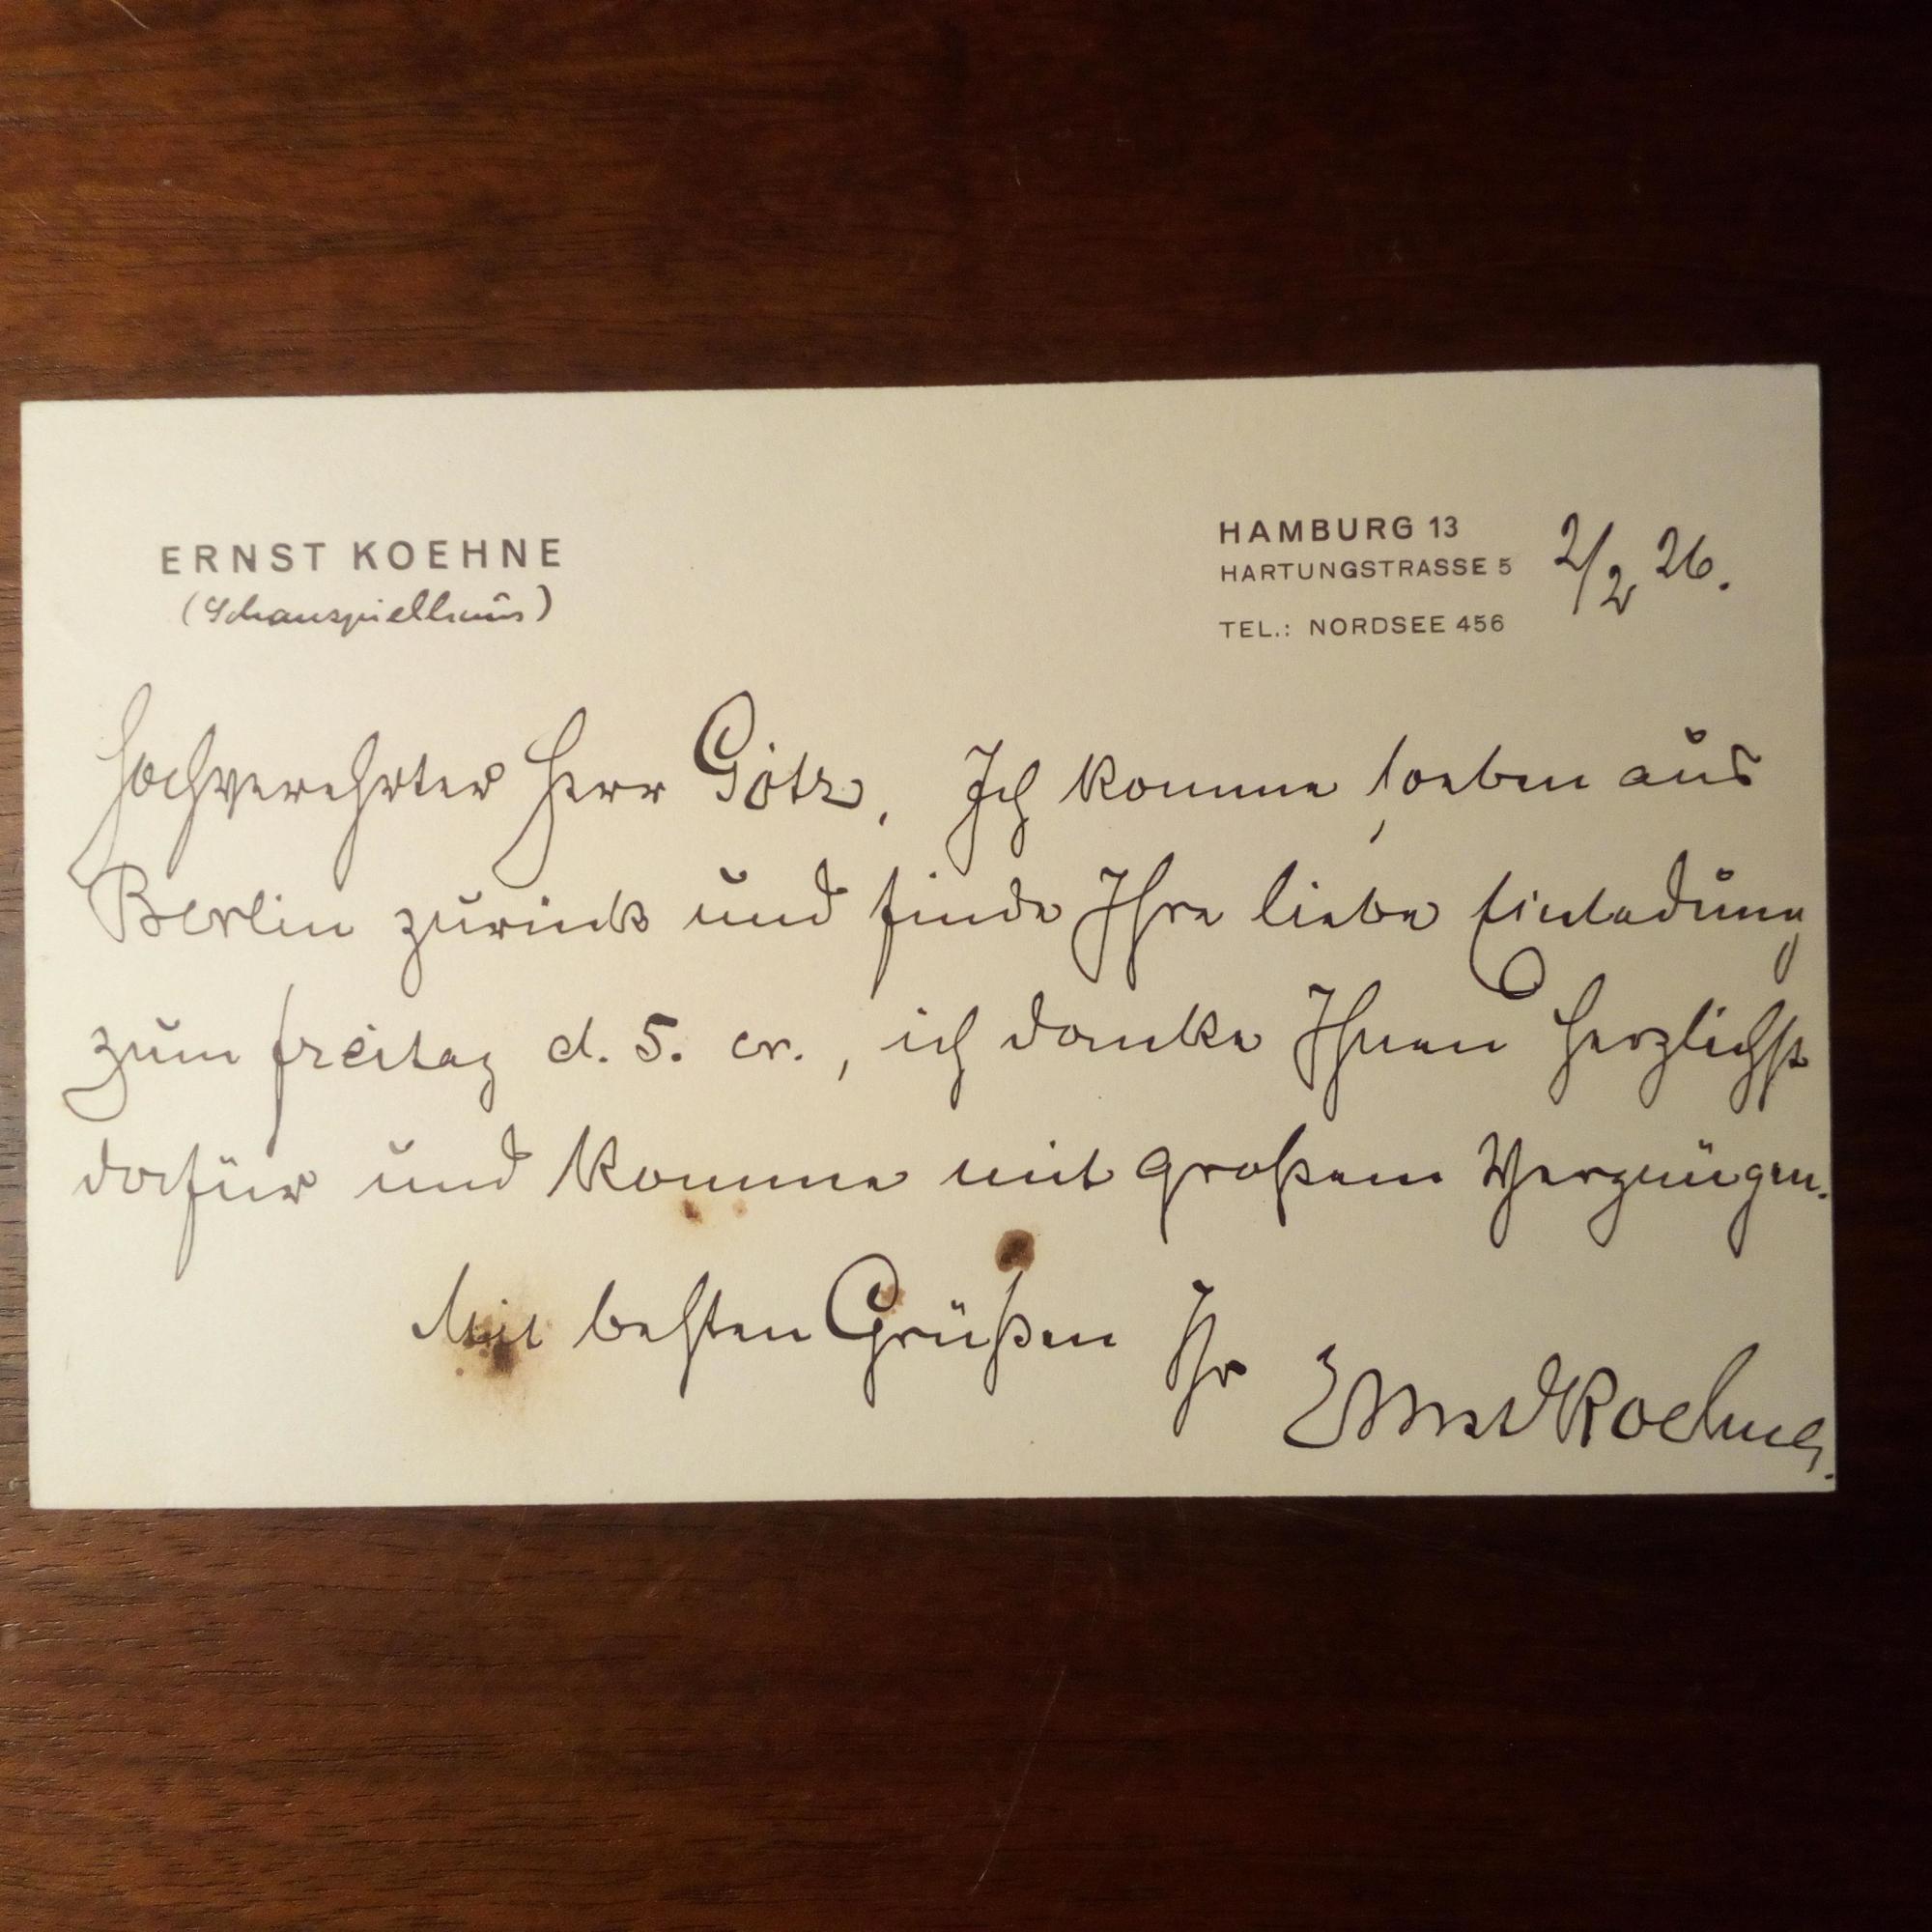 ERNST KOEHNE
(Schauspielhaus)
HAMBURG 13
HARTUNGSTRASSE 5
TEL.: NORDSEE 456
2/2 26.
Hochverehrter Herr Götz, Ich komme soeben aus
Berlin zurück und finde Ihre liebe Einladung
zum Freitag d. 5. cr., ich danke Ihnen herzlichst
dafür und komme mit großem Vergnügen.
Mit besten Grüßen Ihr
Ernst Koehne.